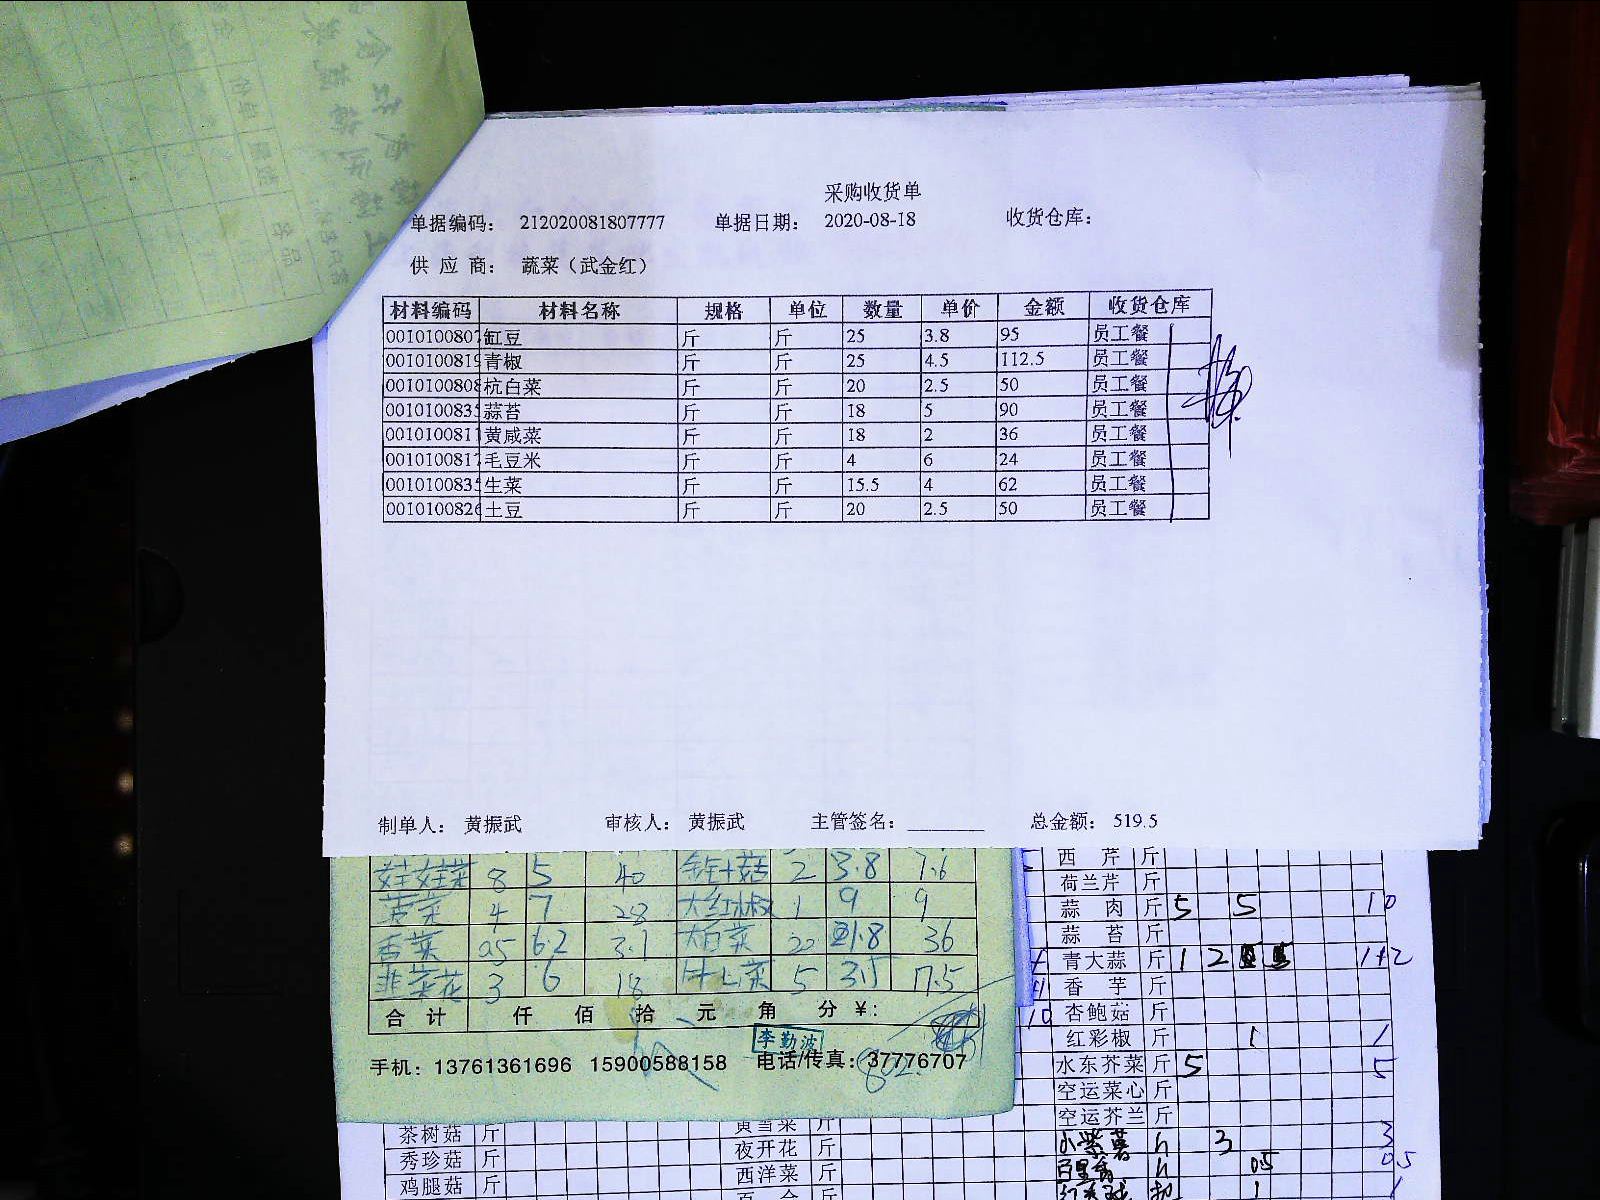 采购收货单
单据编码： 212020081807777 单据日期： 2020-08-18 收货仓库：
供 应 商： 蔬菜（武金红）
材料编码 材料名称 规格 单位 数量 单价 金额 收货仓库
0010100807 缸豆 斤 斤 25 3.8 95 员工餐
0010100819 青椒 斤 斤 25 4.5 112.5 员工餐
0010100808 杭白菜 斤 斤 20 2.5 50 员工餐
001010083 蒜苔 斤 斤 18 5 90 员工餐
001010081 黄咸菜 斤 斤 18 2 36 员工餐
001010081 毛豆米 斤 斤 4 6 24 员工餐
001010083 生菜 斤 斤 15.5 4 62 员工餐
0010100826 土豆 斤 斤 20 2.5 50 员工餐
制单人： 黄振武 审核人： 黄振武 主管签名： 总金额： 519.5
娃娃菜 8 5 40 2 3.8 7.6
4 7 28 大红椒 1 9 9
香菜 05 6.2 3.1 大白菜 20 1.8 36
韭菜花 3 6 18 5 3.5 17.5
合 计 仟 佰 拾 元 角 分 ¥:
李勤波
手机：13761361696 15900588158 电话/传真：37776707
西 芹 斤
荷兰芹 斤
蒜 肉 斤 5 5 10
蒜 苔 斤
青大蒜 斤 1 2 1+2
香 芋 斤
10 杏鲍菇 斤
红彩椒 斤 1 1
水东芥菜 斤 5 5
空运菜心 斤
空运芥兰 斤
小紫薯 3 3
05 05
茶树菇 斤 黄雪菜 斤
秀珍菇 斤 夜开花 斤
鸡腿菇 斤 西洋菜 斤
百 合 斤